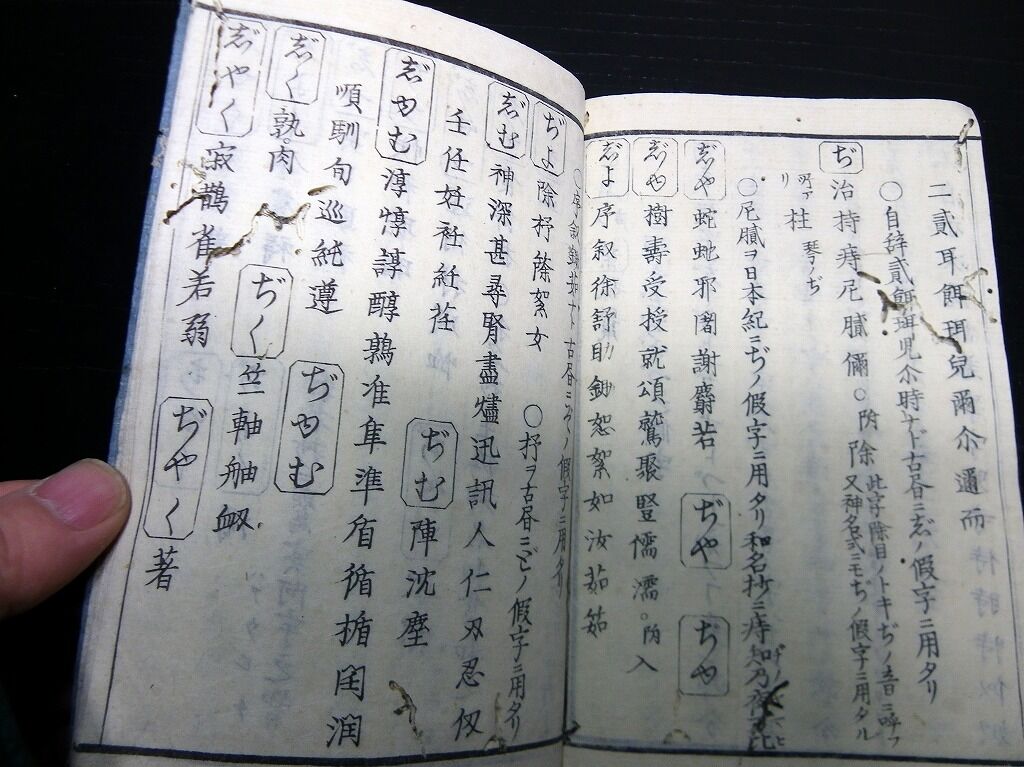 二貳耳餌珥兒爾尒邇而
〇自辞貳餌珥児尒時ナド古昏ニ志゛ノ假字ニ用タリ
ぢ 治持痔尼膩儞〇防除 此字除目ノトキぢノ音ニ呼フ 又神名式ニモぢノ假字ニ用タル
リ 柱 琴ノぢ
〇尼膩ヲ日本紀ニぢノ假字ニ用タリ和名抄ニ痔知乃夜
じや 蛇虵邪闍謝麝若 ぢや ぢや
じゆ 樹壽受授就頌鷲聚豎懦濡〇防入
じよ 序叙徐舒助鋤恕絮如汝茹
ぢよ 除杼篨絮女 〇杼ヲ古昏ニどノ假字ニ用タリ
じむ 神深甚尋腎盡燼迅訊人仁刄忍仭
壬任妊衽紝荏
じゆむ 淳惇諄醇鶉准隼準盾循揗閏潤 ぢむ 陣沈塵
順馴旬巡純遵 ぢゆむ
じく 孰肉 ぢく 竺軸舳衂
じやく 寂鵲雀若弱 ぢやく 著